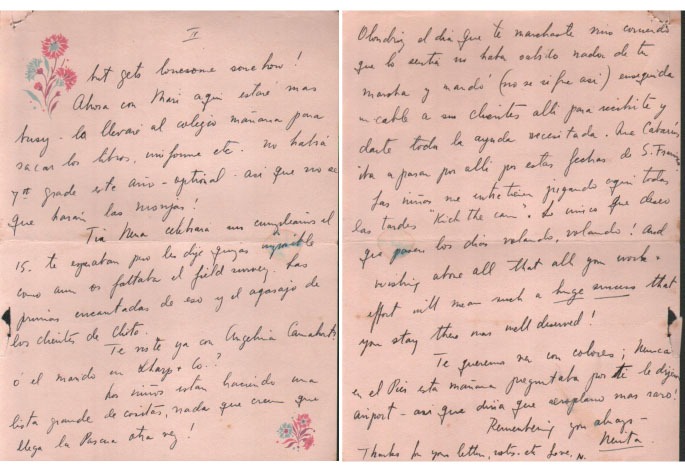 II
but gets lonesome somehow!
Ahora con Mari aqui estaré mas
busy. La llevaré al colegio mañana para
sacar los libros, uniforme etc. no habrá
7th grade este año - optional. asi que no se
que harán las monjas!
Tia Nena celebrará su cumpleaños el
15. te esperaban pero les dije quizas imposible
como aun os faltaba el field survey. Las
primas encantadas de eso y el agasajo de
los clientes de
Te viste ya con Angelina
ó el marido en Sharp & Co.?
Los niños estan haciendo una
lista grande de cositas, nada que creen que
llega la Pascua otra vez!
el dia que te marchaste vino corriendo
que lo sentia no haba sabido nada de tu
marcha y mandó (no se si fue asi) enseguida
un cable a sus clientes alli para recibirte y
darte toda la ayuda necesitada. Que
iba a pasar por alli por estas fechas de S.
Los niños me entretienen jugando aqui todas
las tardes "Kick the can". Lo unico que deseo
que pasen los dias volando, volando! And
wishing above all that all your work &
effort will mean such a huge success that
your stay there was well deserved!
Te queremos ver con colores; Nunca
en el Pier esta mañana preguntaba por ti le dijeron
airport - asi que diria que aeroplano mas raro!
Remembering you always -
Nenita
Thanks for your letter, etc. Love, N.